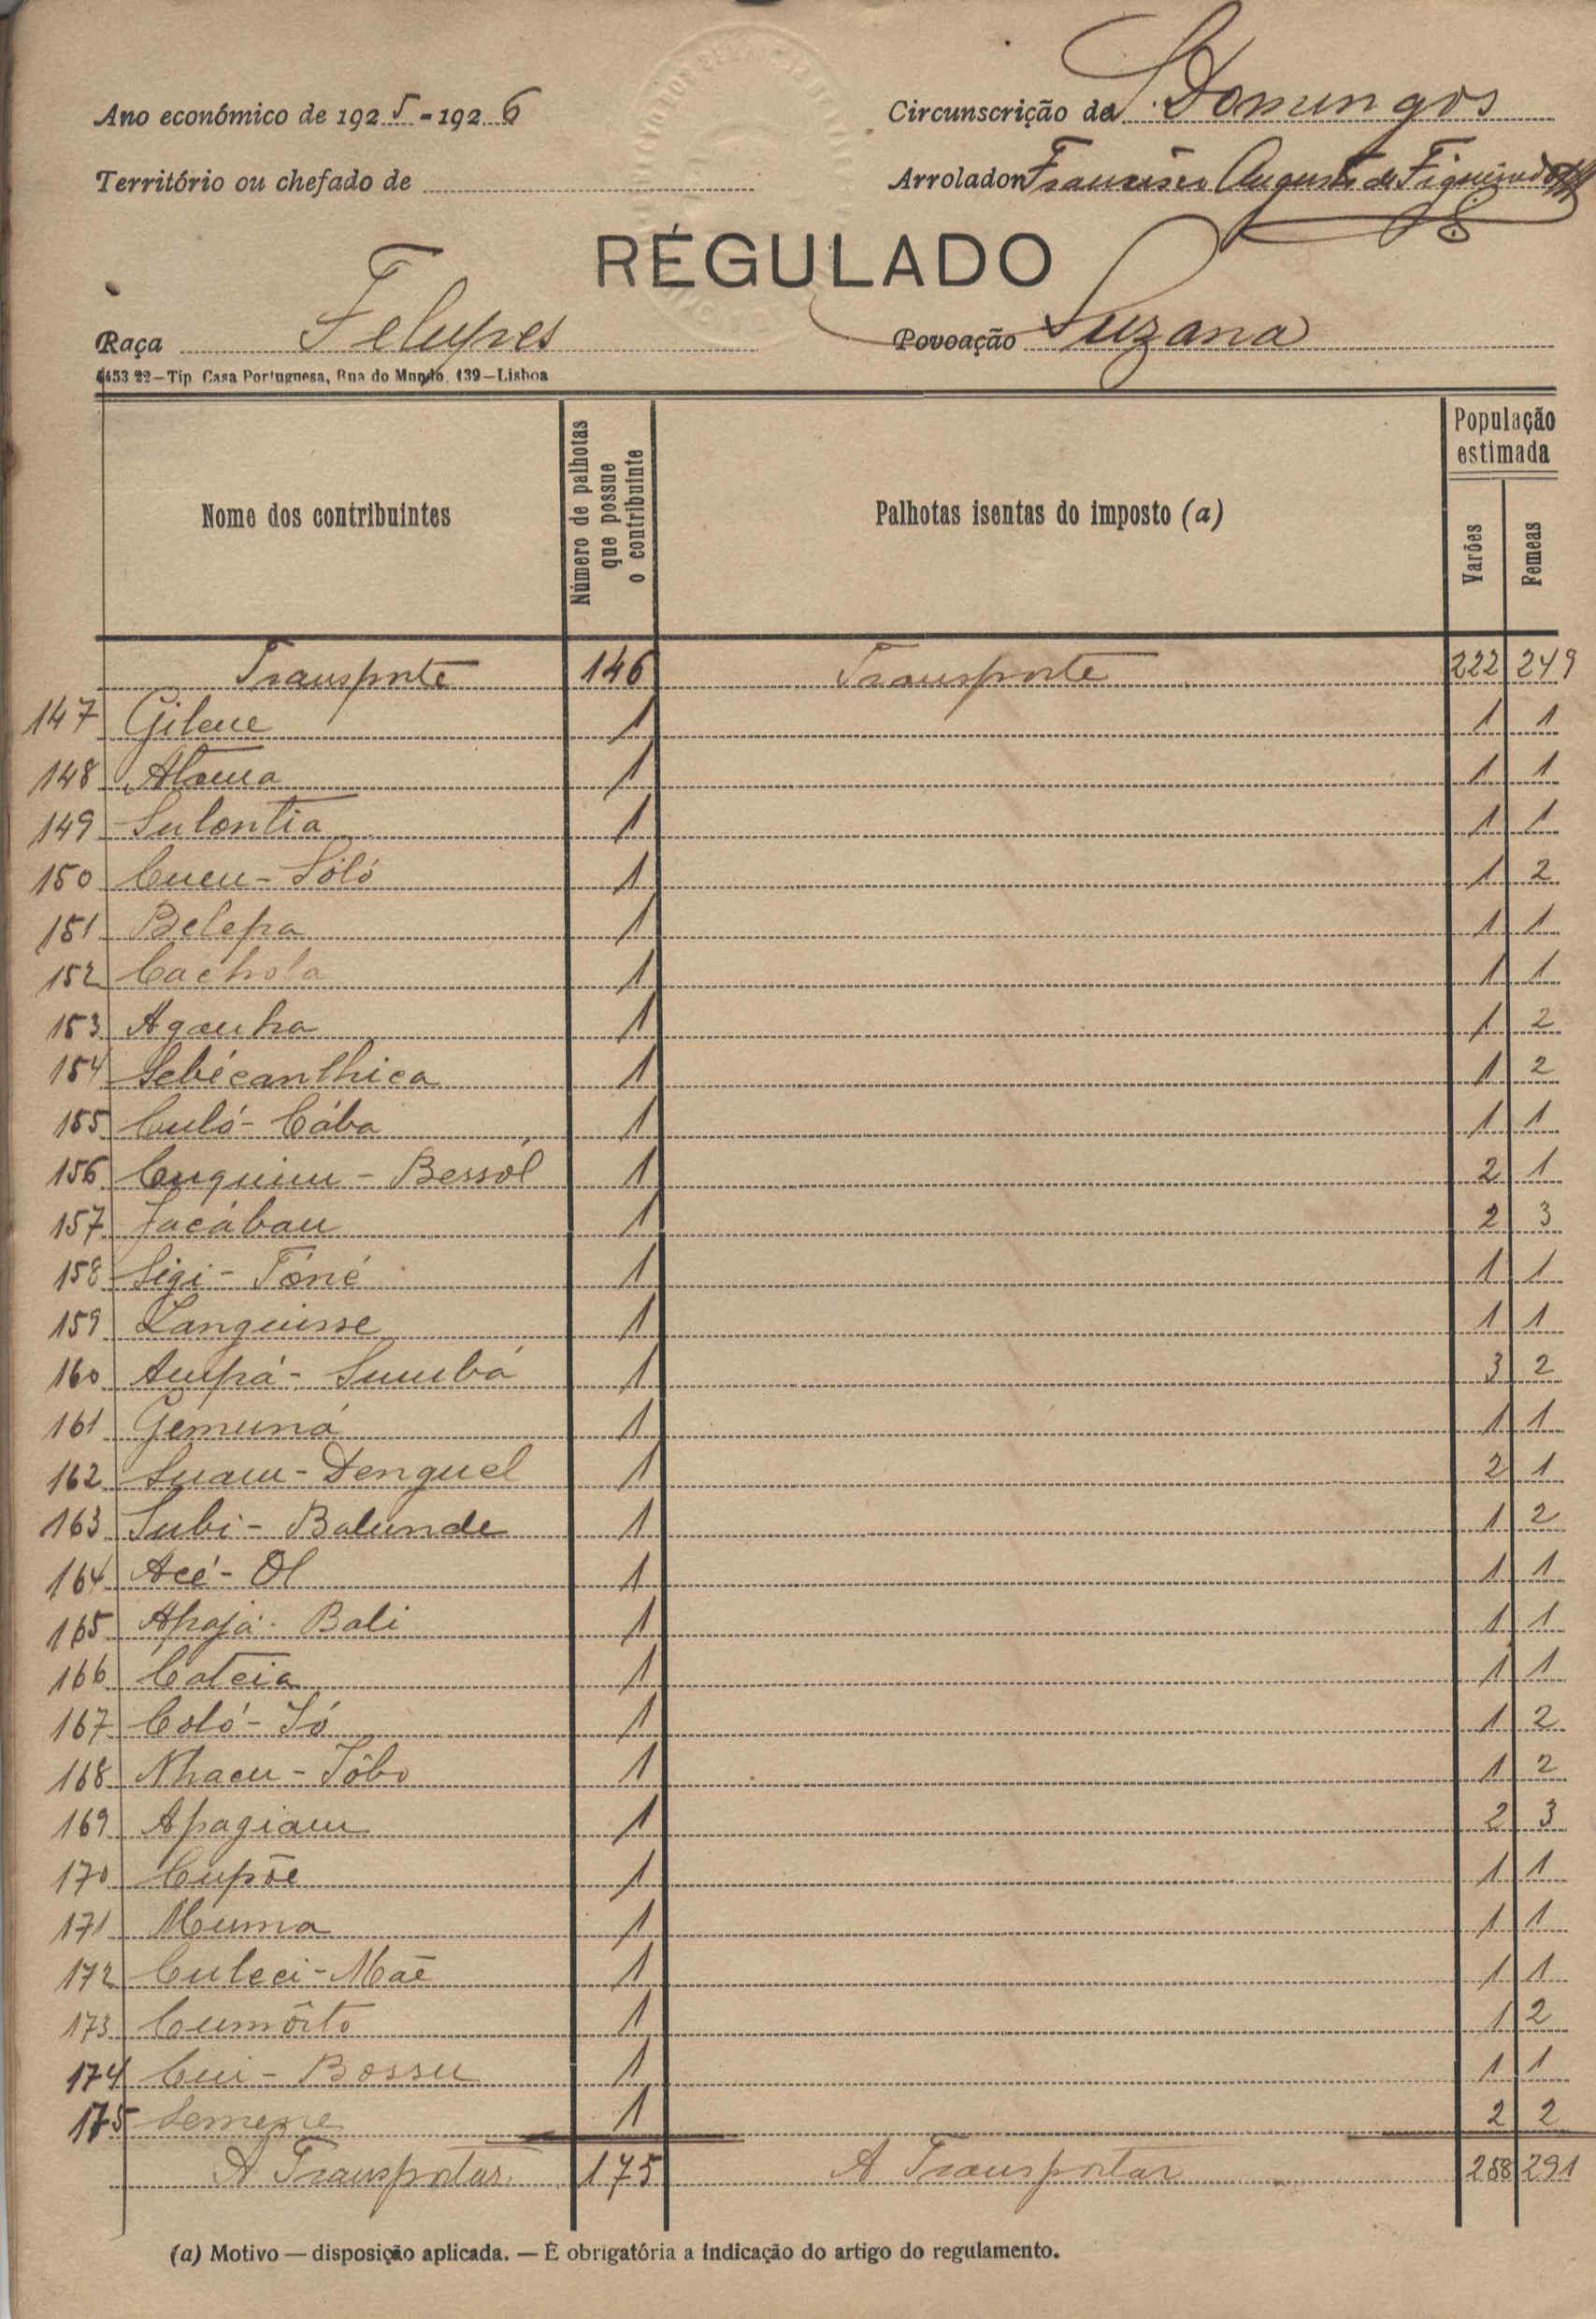 Ano económico de 1925-1926
Circunscrição de S. Domingos
Território ou chefado de
Arrolador Francisco Augusto de Figueiredo
RÉGULADO
Raça Felupes
Povoação Suzana
4453 22—Tip. Casa Portuguesa, Rua do Mundo, 139—Lisboa
Nome dos contribuintes
Número de palhotas que possue o contribuinte
Palhotas isentas do imposto (a)
População estimada
Varões
Femeas
Transporte 146 Transporte 222 249
147 Gilene 1 1 1
148 1 1 1
149 Sulontia 1 1 1
150 Cucu-Sóló 1 1 2
151 Belepa 1 1 1
152 Cachola 1 1 1
153 Aganha 1 1 2
154 Sebécanthica 1 1 2
155 Culó-Cába 1 1 1
156 Cuquim-Bessól 1 2 1
157 Jacábau 1 2 3
158 Sigi-Tóné 1 1 1
159 Languisse 1 1 1
160 Ampá-Sumbá 1 3 2
161 Gemuná 1 1 1
162 Suam-Denguel 1 2 1
163 Subi-Balunde 1 1 2
164 Acé-Ol 1 1 1
165 Apajá-Bali 1 1 1
166 Cateia 1 1 1
167 Coló-Só 1 1 2
168 Nhacu-Tôbo 1 1 2
169 Apagiam 1 2 3
170 Cupõe 1 1 1
171 Muma 1 1 1
172 Culeci-Mãe 1 1 1
173 Cumôito 1 1 2
174 Cui-Bossu 1 1 1
175 1 2 2
A Transportar 175 A Transportar 258 291
(a) Motivo — disposição aplicada. — É obrigatória a indicação do artigo do regulamento.